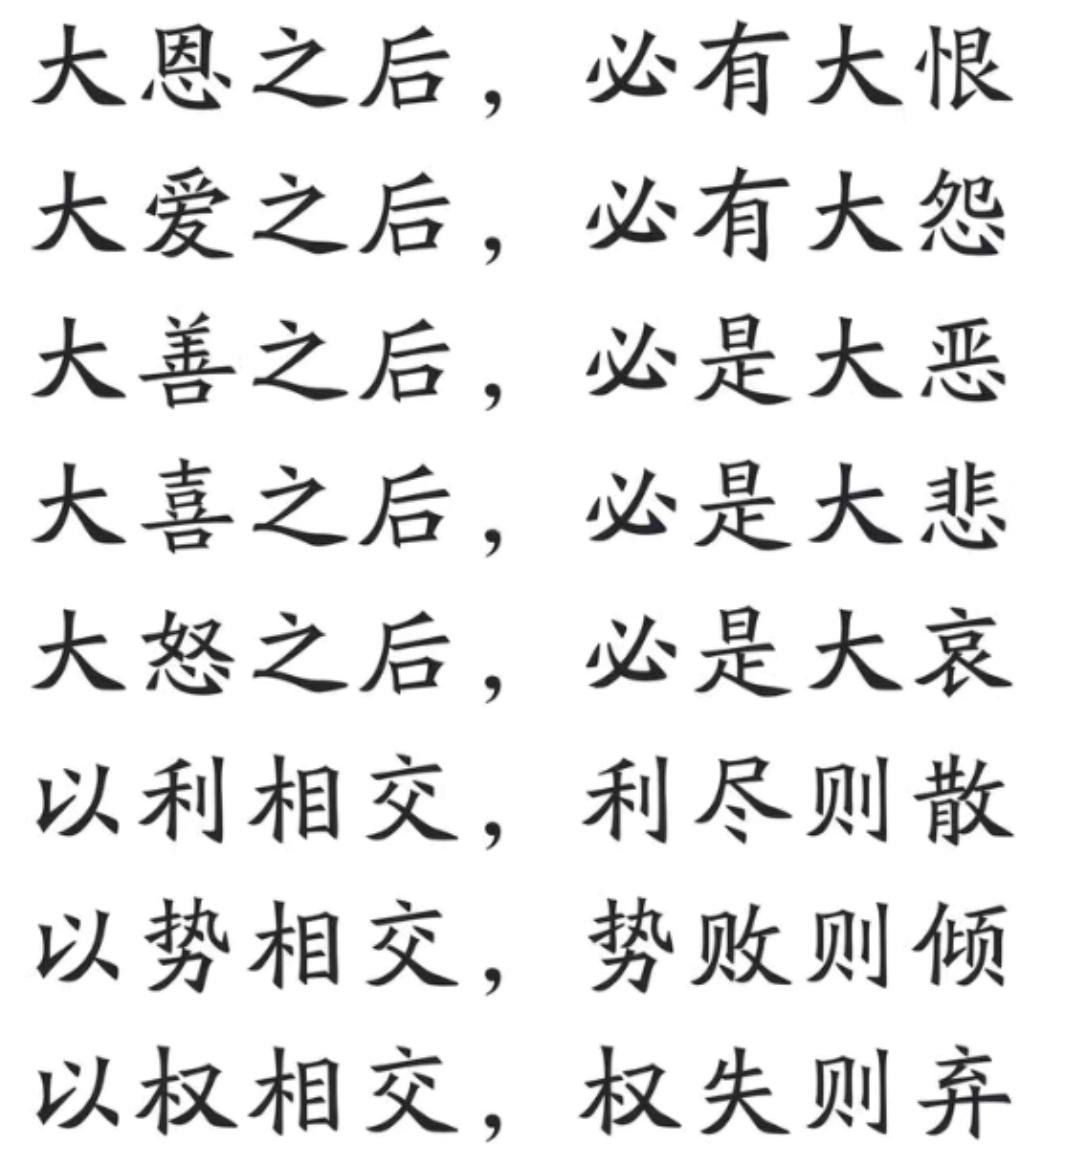 大恩之后，必有大恨
大爱之后，必有大怨
大善之后，必是大恶
大喜之后，必是大悲
大怒之后，必是大哀
以利相交，利尽则散
以势相交，势败则倾
以权相交，权失则弃